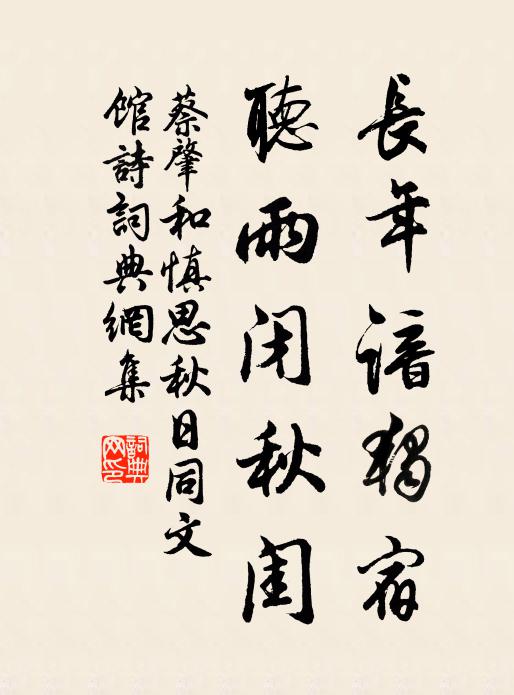 長年諳獨宿
聽雨閉秋閨
蔡肇和慎思秋日同文
館詩詞典網集
詞典
网印